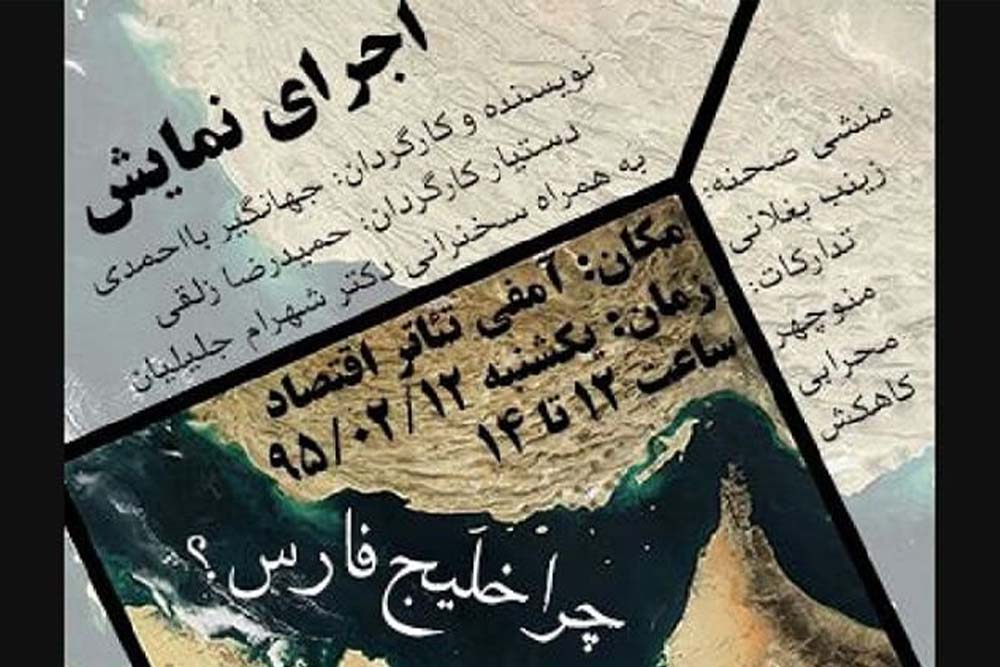 اجرای نمایش
نویسنده و کارگردان: جهانگیر بااحمدی
دستیار کارگردان: حمیدرضا زلقی
به همراه سخنرانی دکتر شهرام جلیلیان
منشی صحنه:
زینب بغلانی
تدارکات:
منوچهر
محرابی
کاهکش
مکان: آمفی تئاتر اقتصاد
زمان: یکشنبه ۹۵/۰۲/۱۲
ساعت ۱۲ تا ۱۴
چرا خلیج فارس؟